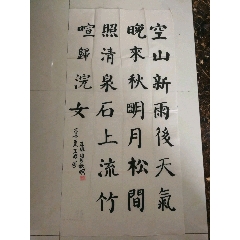 空山新雨後天氣
晚來秋明月松間
照清泉石上流竹
喧歸浣女